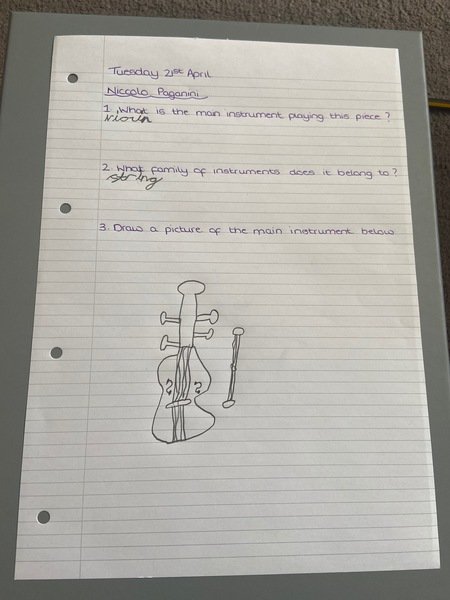 Tuesday 21st April
Niccolo Paganini
1. What is the main instrument playing this piece?
Violin
2. What family of instruments does it belong to?
string
3. Draw a picture of the main instrument below